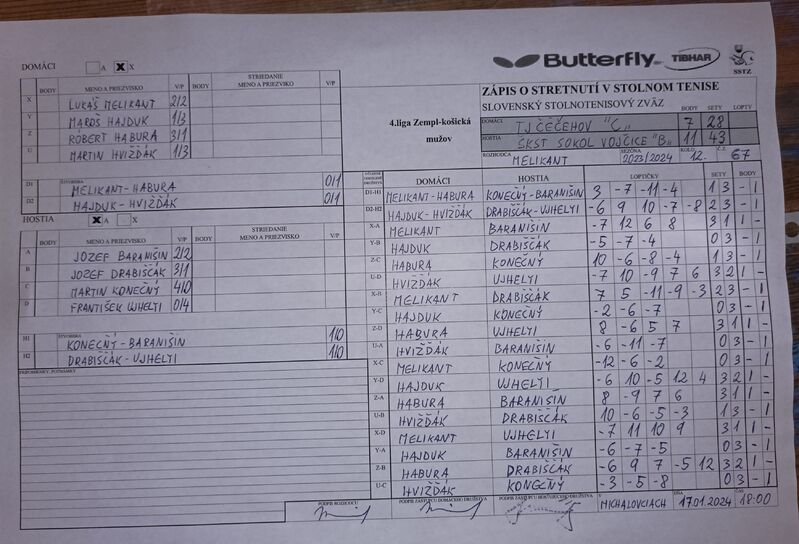 DOMÁCI A X X
Butterfly TIBHAR SSTZ
BODY MENO A PRIEZVISKO V/P BODY STRIEDANIE MENO A PRIEZVIKO V/P
X LUKÁŠ MELIKANT 2/2
Y MAROŠ HAJDUK 1/3
Z RÓBERT HABURA 3/1
U MARTIN HVIŽĎÁK 1/3
ŠTVORHRA
D1 MELIKANT-HABURA 0/1
D2 HAJDUK-HVIŽĎÁK 0/1
HOSTIA A X X
BODY MENO A PRIEZVISKO V/P BODY STRIEDANIE MENO A PRIEZVISKO V/P
A JOZEF BARANIŠIN 2/2
B JOZEF DRABIŠČÁK 3/1
C MARTIN KONEČNÝ 4/0
D FRANTIŠEK UJHELYI 0/4
ŠTVORHRA
H1 KONEČNÝ-BARANIŠIN 1/0
H2 DRABIŠČÁK-UJHELYI 1/0
PRIPOMIENKY, POZNÁMKY
4.liga Zempl-košická
mužov
ZÁPIS O STRETNUTÍ V STOLNOM TENISE
SLOVENSKÝ STOLNOTENISOVÝ ZVÄZ BODY SETY LOPTY
DOMÁCI TJ ČEČEHOV "C" 7 28
HOSTIA ŠKST SOKOL VOJČICE "B" 11 43
ROZHODCA MELIKANT SEZÓNA 2023/2024 KOLO 12. Č. 67
DOMÁCI HOSTIA LOPTIČKY SETY BODY
D1-H1 MELIKANT-HABURA KONEČNÝ-BARANIŠIN 3 -7 -11 -4 1 3 - 1
D2-H2 HAJDUK-HVIŽĎÁK DRABIŠČÁK-UJHELYI -6 9 10 -7 -8 2 3 - 1
X-A MELIKANT BARANIŠIN -7 12 6 8 3 1 1 -
Y-B HAJDUK DRABIŠČÁK -5 -7 -4 0 3 - 1
Z-C HABURA KONEČNÝ 10 -6 -8 -4 1 3 - 1
U-D HVIŽĎÁK UJHELYI -7 10 -9 7 6 3 2 1 -
X-B MELIKANT DRABIŠČÁK 7 5 -11 -9 -3 2 3 - 1
Y-C HAJDUK KONEČNÝ -2 -6 -7 0 3 - 1
Z-D HABURA UJHELYI 8 -6 5 7 3 1 1 -
U-A HVIŽĎÁK BARANIŠIN -6 -11 -7 0 3 - 1
X-C MELIKANT KONEČNÝ -12 -6 -2 0 3 - 1
Y-D HAJDUK UJHELYI -6 10 -5 12 4 3 2 1 -
Z-A HABURA BARANIŠIN 8 -9 7 6 3 1 1 -
U-B HVIŽĎÁK DRABIŠČÁK 10 -6 -5 -3 1 3 - 1
X-D MELIKANT UJHELYI -7 11 10 9 3 1 1 -
Y-A HAJDUK BARANIŠIN -6 -7 -5 0 3 - 1
Z-B HABURA DRABIŠČÁK -6 9 7 -5 12 3 2 1 -
U-C HVIŽĎÁK KONEČNÝ -3 -5 -8 0 3 - 1
PODPIS ROZHODCU PODPIS ZÁSTUPCU DOMÁCEHO DRUŽSTVA PODPIS ZÁSTUPCU HOSŤUJÚCEHO DRUŽSTVA V MICHALOVCIACH DŇA 17.01.2024 ČAS 18:00